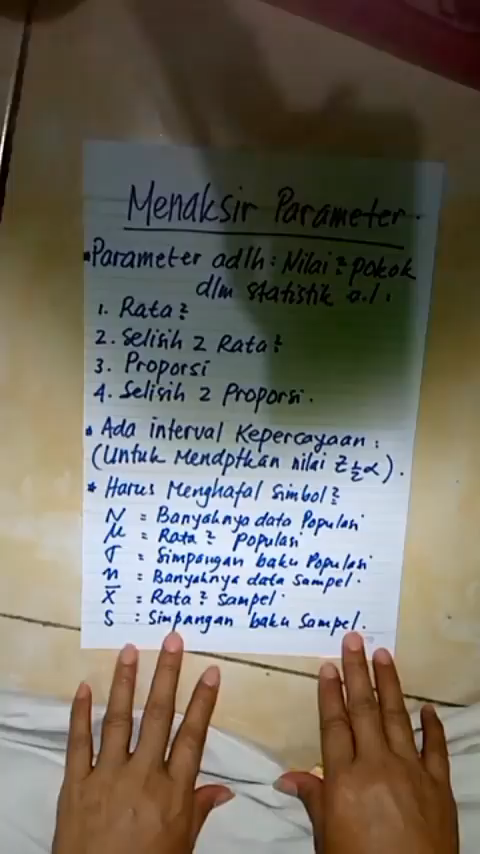 Menaksir Parameter.
• Parameter adlh : Nilai² pokok
dlm statistik a.l :
1. Rata²
2. Selisih 2 Rata²
3. Proporsi
4. Selisih 2 Proporsi.
• Ada interval Kepercayaan :
(Untuk Mendptkan nilai Z½α).
* Harus Menghafal Simbol²
N = Banyaknya data Populasi
μ = Rata² Populasi
σ = Simpangan baku Populasi
n = Banyaknya data Sampel.
x̄ : Rata² Sampel.
S : Simpangan baku Sampel.